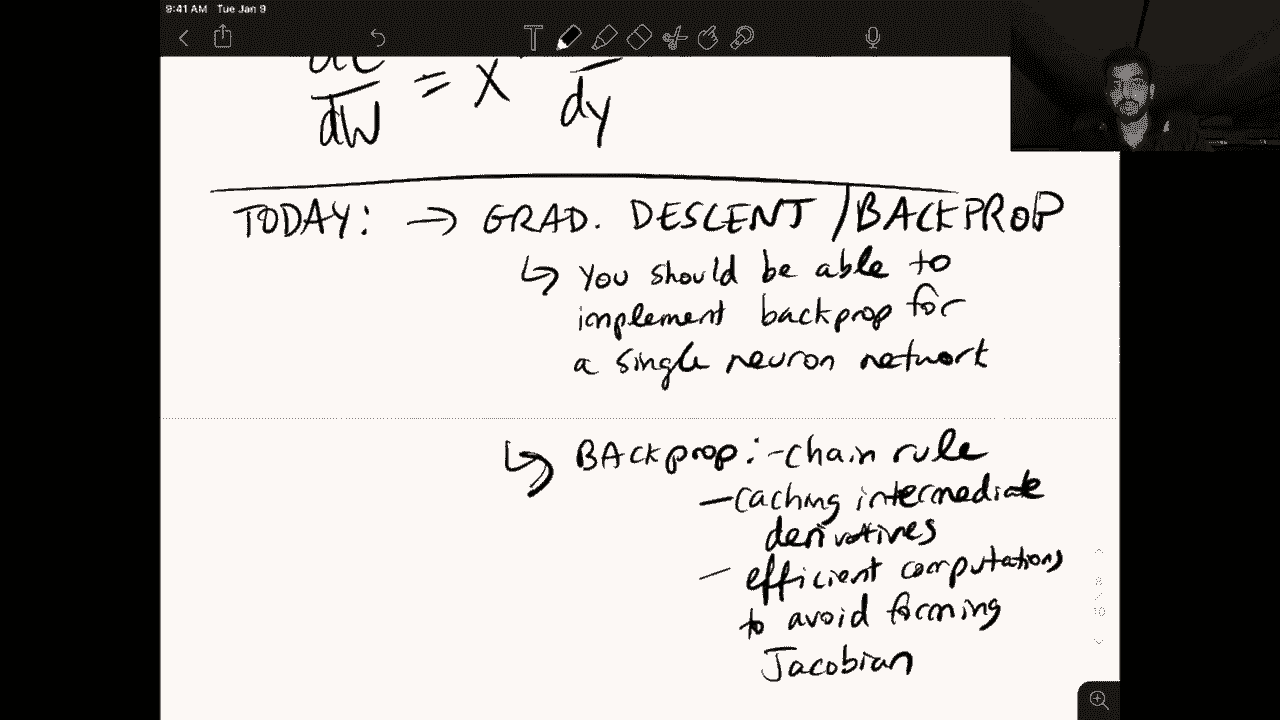 9:41 AM Tue Jan 9
dW = X dy
TODAY: → GRAD. DESCENT / BACKPROP
↳ You should be able to
implement backprop for
a single neuron network
↳ BACKprop: - chain rule
- caching intermediate
derivatives
- efficient computations
to avoid forming
Jacobian